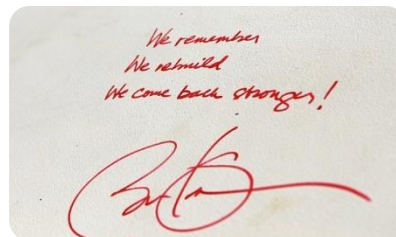 We remember
We rebuild
We come back stronger!